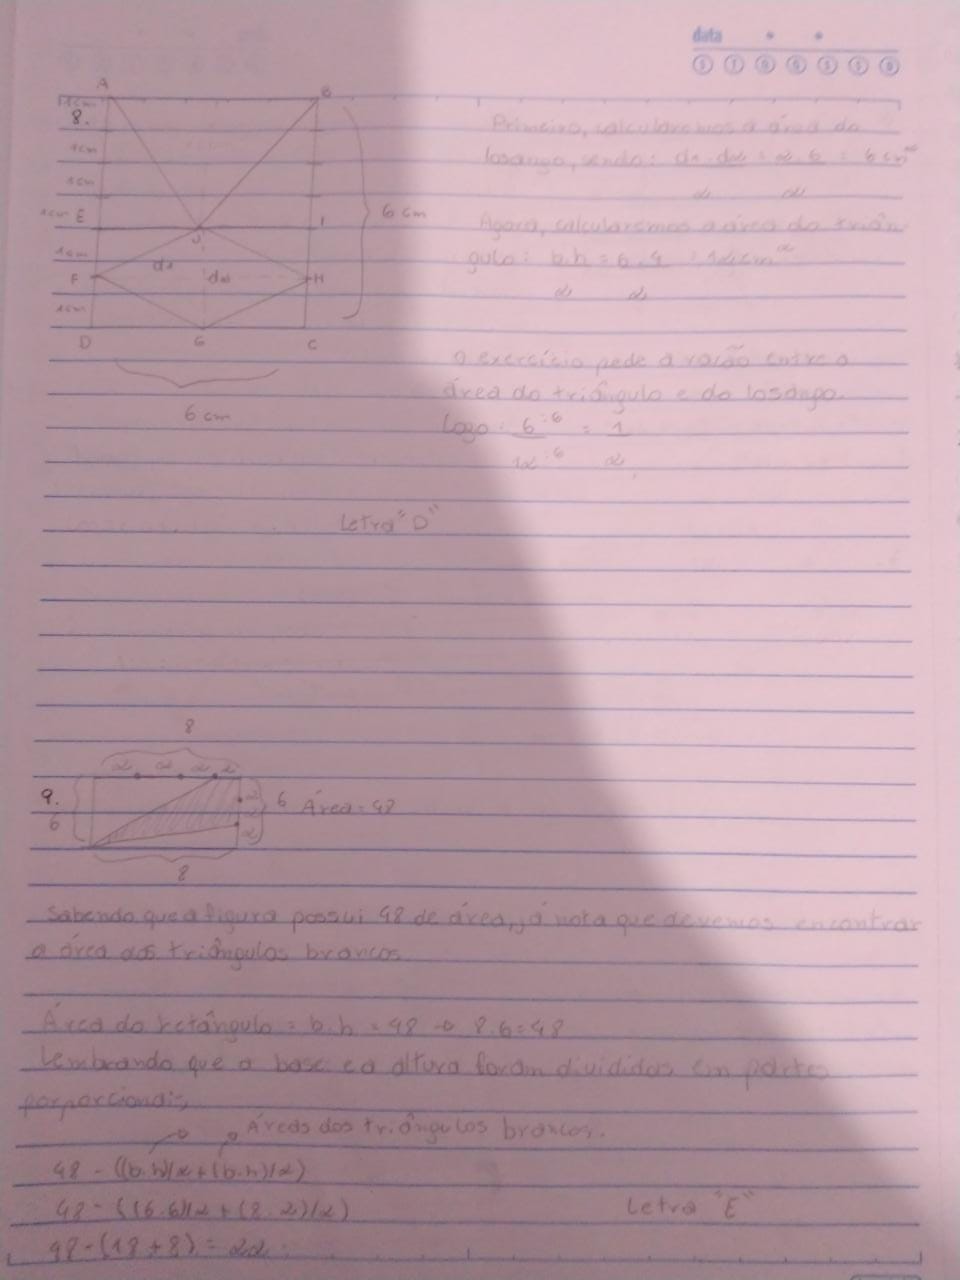 data
A B
1cm
8.
1cm
1cm
1cm E I
J
6 cm
1cm
F d1 d2 H
1cm
D G C
6 cm
Primeiro, calcularemos a área do
losango, sendo: d1.d2 = 2.6 = 6 cm²
2 2
Agora, calcularemos a área do triân
gulo: b.h = 6.4 = 12cm²
2 2
O exercício pede a razão entre a
área do triângulo e do losango.
Logo: 6 :6 = 1
12 :6 2
Letra "D"
8
2 2 2 2
9.
6
2
2
2
6 Área = 48
8
Sabendo que a figura possui 48 de área, já nota que devemos encontrar
a área dos triângulos brancos.
Área do retângulo = b.h = 48 → 8.6=48
Lembrando que a base e a altura foram divididas em partes
porporcionais,
Áreas dos triângulos brancos.
48 - ((b.h)/2 + (b.h)/2)
48 - ((6.6)/2 + (8.2)/2)
Letra "E"
48 - (18 + 8) = 22